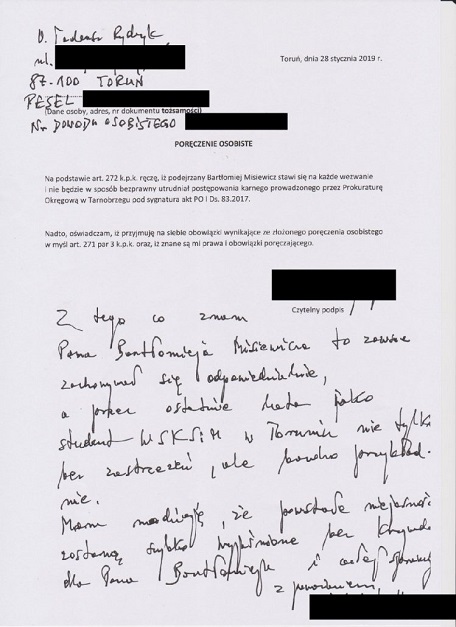 O. Tadeusz Rydzyk
ul.
Toruń, dnia 28 stycznia 2019 r.
87-100 TORUŃ
PESEL
(Dane osoby, adres, nr dokumentu tożsamości)
Nr DOWODU OSOBISTEGO
PORĘCZENIE OSOBISTE
Na podstawie art. 272 k.p.k. ręczę, iż podejrzany Bartłomiej Misiewicz stawi się na każde wezwanie
i nie będzie w sposób bezprawny utrudniał postępowania karnego prowadzonego przez Prokuraturę
Okręgową w Tarnobrzegu pod sygnatura akt PO I Ds. 83.2017.
Nadto, oświadczam, iż przyjmuję na siebie obowiązki wynikające ze złożonego poręczenia osobistego
w myśl art. 271 par 3 k.p.k. oraz, iż znane są mi prawa i obowiązki poręczającego.
Czytelny podpis
Z tego co znam
Pana Bartłomieja Misiewicza to zawsze
zachowywał się odpowiedzialnie,
a przez ostatnie lata jako
student WSKSiM w Toruniu nie tylko
bez zastrzeżeń, ale bardzo przykład-
nie.
Mam nadzieję, że powstałe niejasności
zostaną szybko wyjaśnione bez krzywdy
dla Pana Bartłomieja i całej sprawy
z poważaniem